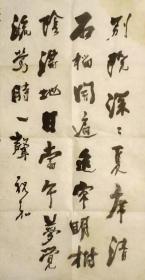 別院深〻夏席清
石榴開遍透帘明樹
陰滿地日當午夢覺
流鶯時一聲